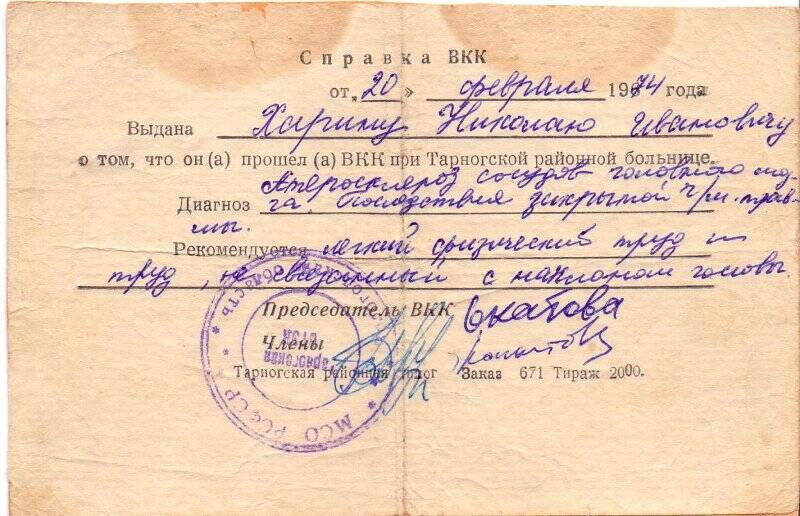 Справка ВКК
от „20 » февраля 1974 года
Выдана Харину Николаю Ивановичу
о том, что он (а) прошел (а) ВКК при Тарногской районной больнице.
Атеросклероз сосудов головного моз-
Диагноз га. Последствия закрытой ч/м. трав-
мы.
Рекомендуется легкий физический труд и
труд, не связанный с наклоном головы.
Председатель ВКК Окатова
Члены
Тарногская районная Заказ 671 Тираж 2000.
МСО РСФСР